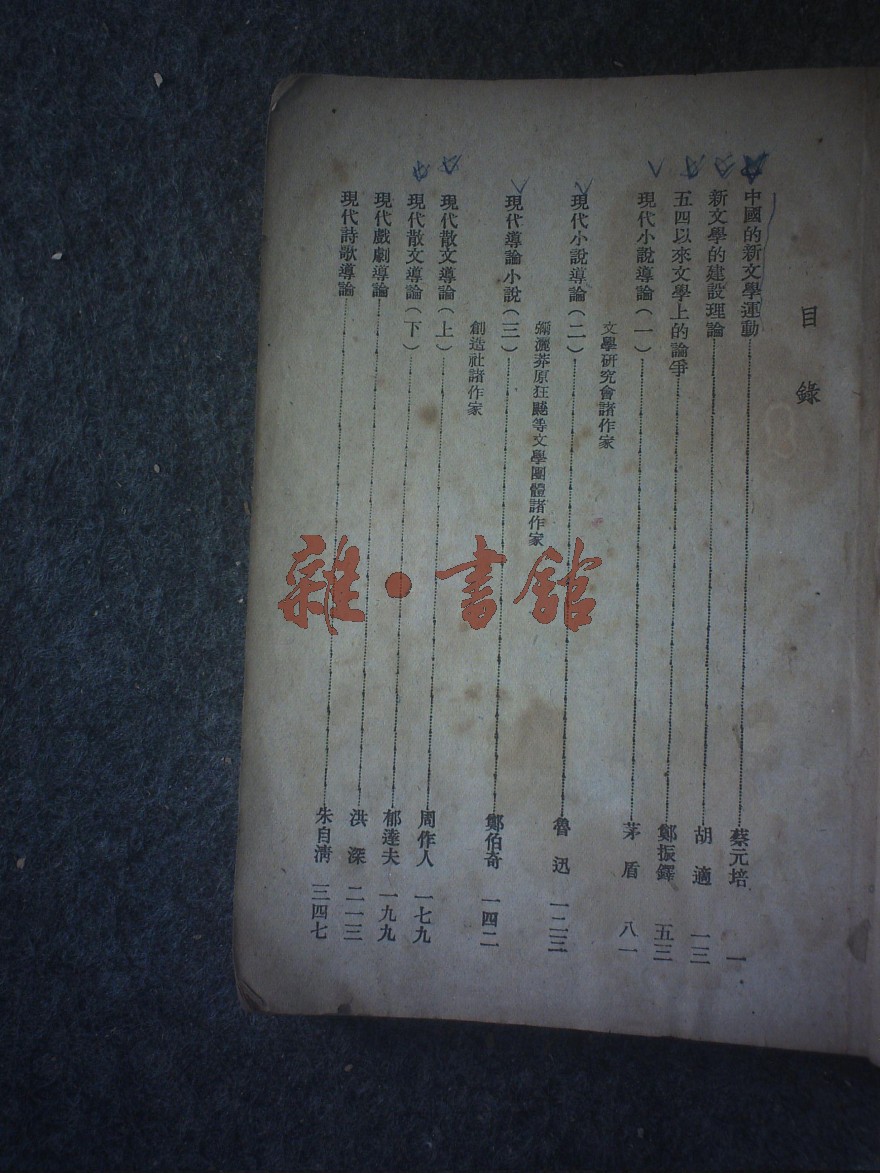 目錄
中國的新文學運動 蔡元培 一
新文學的建設理論 胡適 一三
五四以來文學上的論爭 鄭振鐸 五三
現代小說導論(一) 茅盾 八一
文學研究會諸作家
現代小說導論(二) 魯迅 一二三
彌灑莽原狂飈等文學團體諸作家
現代導論小說(三) 鄭伯奇 一四二
創造社諸作家
現代散文導論(上) 周作人 一七九
現代散文導論(下) 郁達夫 一九九
現代戲劇導論 洪深 二一三
現代詩歌導論 朱自清 三四七
雜·書館